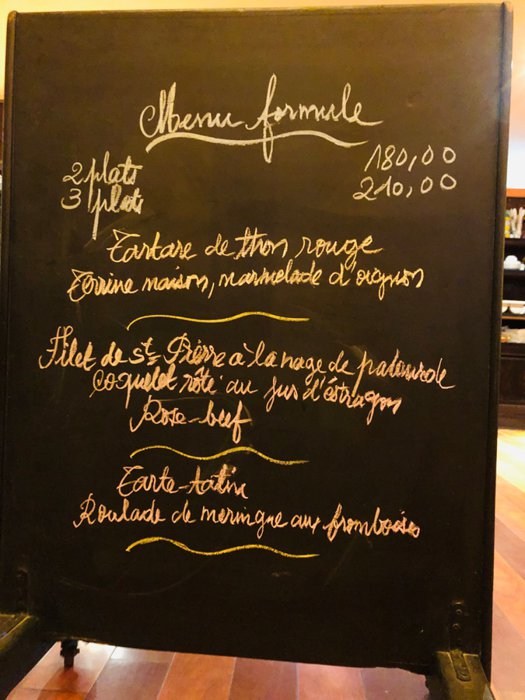 Menu formule
2 plats 180,00
3 plats 210,00
Tartare de thon rouge
Terrine maison, marmelade d'oignon
Filet de St Pierre à la nage de palourde
Coquelet rôti au jus d'éstragon
Rose-beef
Tarte-tatin
Roulade de meringue aux framboises